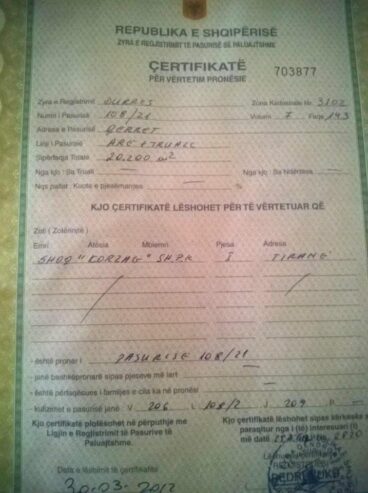 REPUBLIKA E SHQIPËRISË
ZYRA E REGJISTRIMIT TË PASURISË SË PALUAJTSHME
ÇERTIFIKATË
PËR VËRTETIM PRONËSIE
703877
Zyra e Regjistrimit DURRES Zona Kadastrale Nr. 3102
Numri i Pasurisë 108/21 Volumi 7 Faqe 193
Adresa e Pasurisë QERRET
Lloji i Pasurisë ARE E TRUALL
Sipërfaqja Totale 20.200 m²
Nga kjo : Sa Trualli — Nga kjo : Sa Ndërtesa —
Nqs pallat : Kuota e pjesëmarrjes — %
KJO ÇERTIFIKATË LËSHOHET PËR TË VËRTETUAR QË
Zoti ( Zotërinjtë )
Emri Atësia Mbiemri Pjesa Adresa
SHOQ "KORZAG" SH.P.K 1 TIRANË
- është pronar i PASURISË 108/21
- janë bashkëpronarë sipas pjesëve më lart —
- është përfaqësues i familjes e cila ka në pronësi —
- kufizimet e pasurisë janë V 206 L 108/2 J 209 P
Kjo çertifikatë plotësohet në përputhje me
Ligjin e Regjistrimit të Pasurive të
Paluajtshme.
Kjo çertifikatë lëshohet sipas kërkesës së
paraqitur nga (i) të interesuari
më datë
Data e lëshimit të çertifikatës
30-03-2012